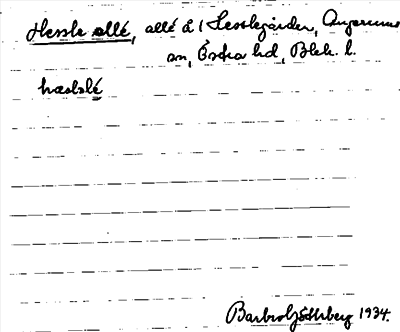 Hessle allé, allé å 1 Hesslegården, Augerums
sn, Östra hd, Blek. l.
hæslalé
Barbro Söderberg 1934.